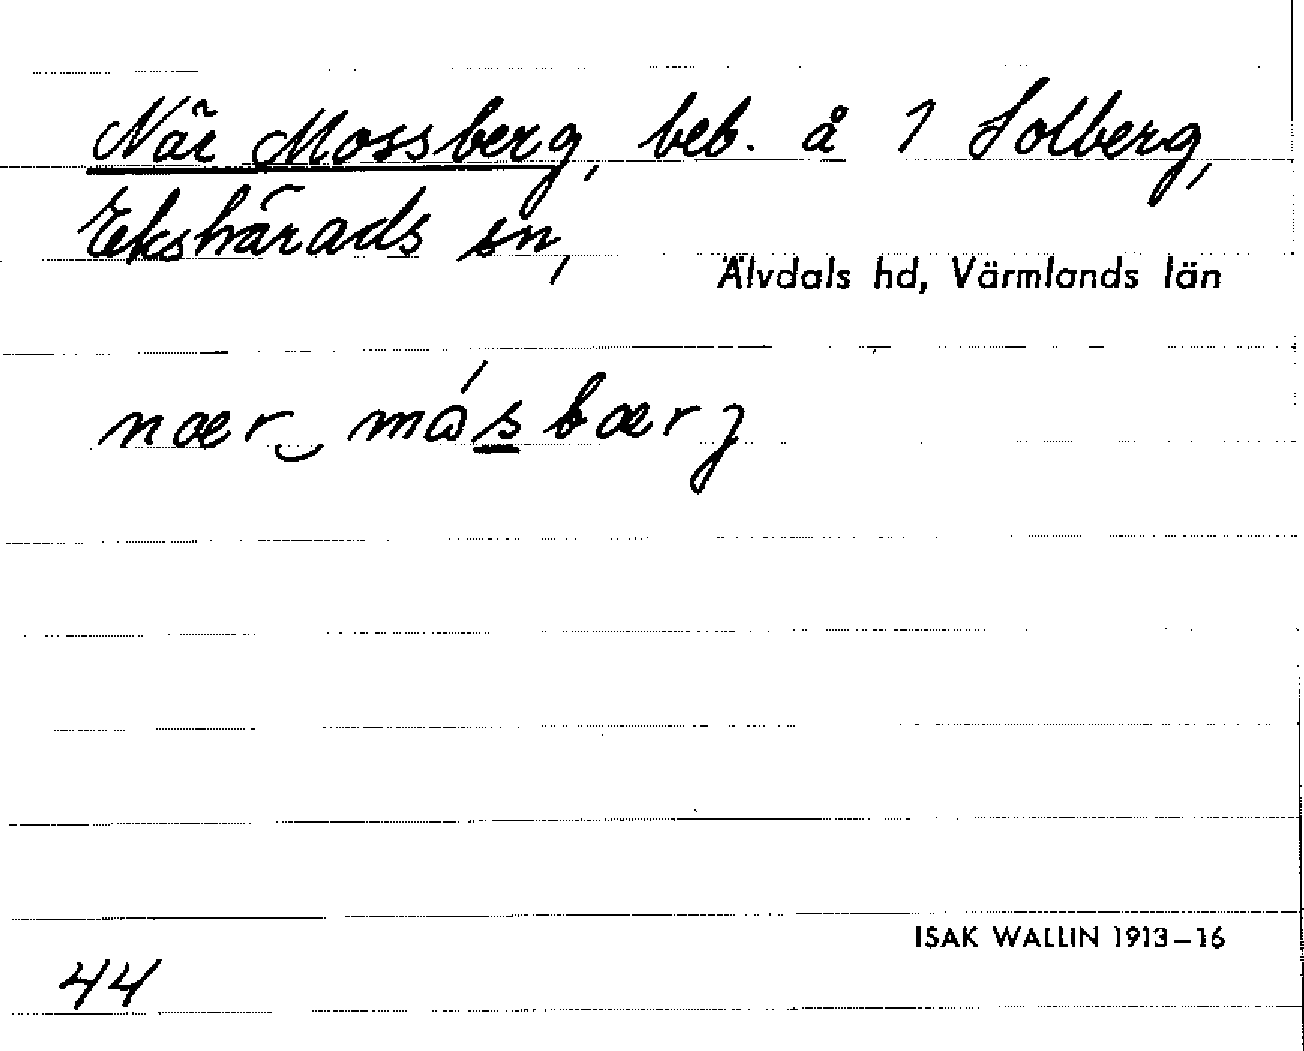 När Mossberg, beb. å 1 Solberg,
Ekshärads sn,
Älvdals hd, Värmlands län
nær‿mǻsbærj
ISAK WALLIN 1913–16
44